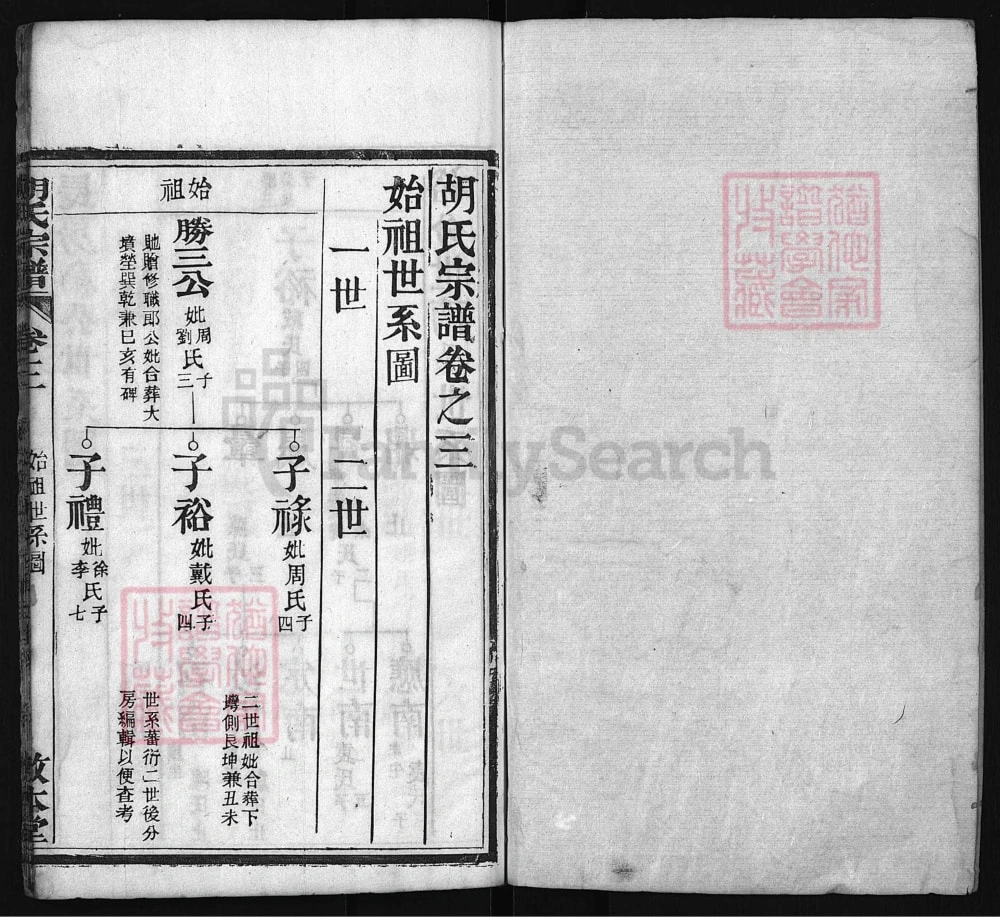 胡氏宗譜卷之三
始祖世系圖
一世
二世
始祖
勝三公
妣周劉氏
子三
馳贈修職郎公妣合葬大
墳塋巽乾兼巳亥有碑
子祿
妣周氏
子四
子裕
妣戴氏
子四
子禮
妣徐李氏
子七
二世祖妣合葬下
塆側艮坤兼丑未
世系蕃衍二世後分
房編輯以便查考
胡氏宗譜
卷三
始祖世系圖
敦本堂
FamilySearch